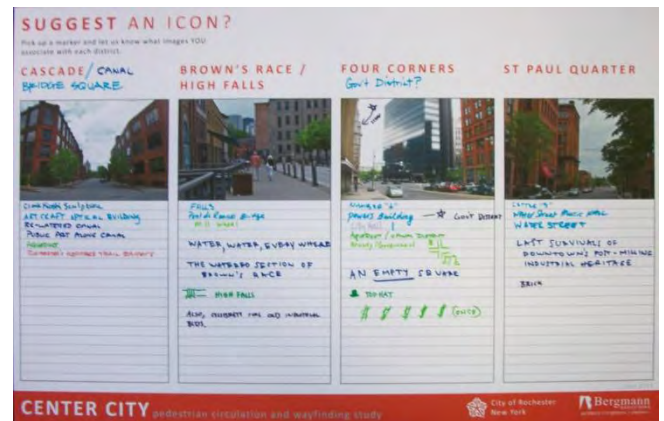 SUGGEST AN ICON?
Pick up a marker and let us know what images YOU
associate with each district.
CASCADE / CANAL
BRIDGE SQUARE
ART CRAFT OPTICAL BUILDING
RE-WATERED CANAL
PUBLIC ART ALONG CANAL
BROWN'S RACE /
HIGH FALLS
FALLS
Pont de Rennes Bridge
WATER, WATER, EVERYWHERE
THE WATERED SECTION OF
BROWN'S RACE
HIGH FALLS
ALSO, CELEBRATE THE OLD INDUSTRIAL
BLDS.
FOUR CORNERS
Gov't District?
Powers Building
GOV'T DISTRICT
AN EMPTY SQUARE
TOP HAT
$ $ $ $ $
ST PAUL QUARTER
WATER STREET
LAST SURVIVALS OF
DOWNTOWN'S POST-MILLING
INDUSTRIAL HERITAGE
BRICK
CENTER CITY pedestrian circulation and wayfinding study
City of Rochester
New York
Bergmann